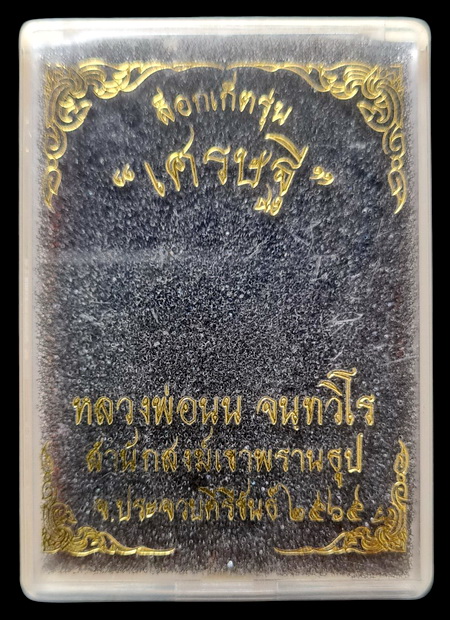 ล็อกเก็ตรุ่น
“เศรษฐี”
หลวงพ่อนน จนทวิโร
สำนักสงฆ์เขาพรานธูป
จ.ประจวบคิรีขันธ์ ๒๕๖๕